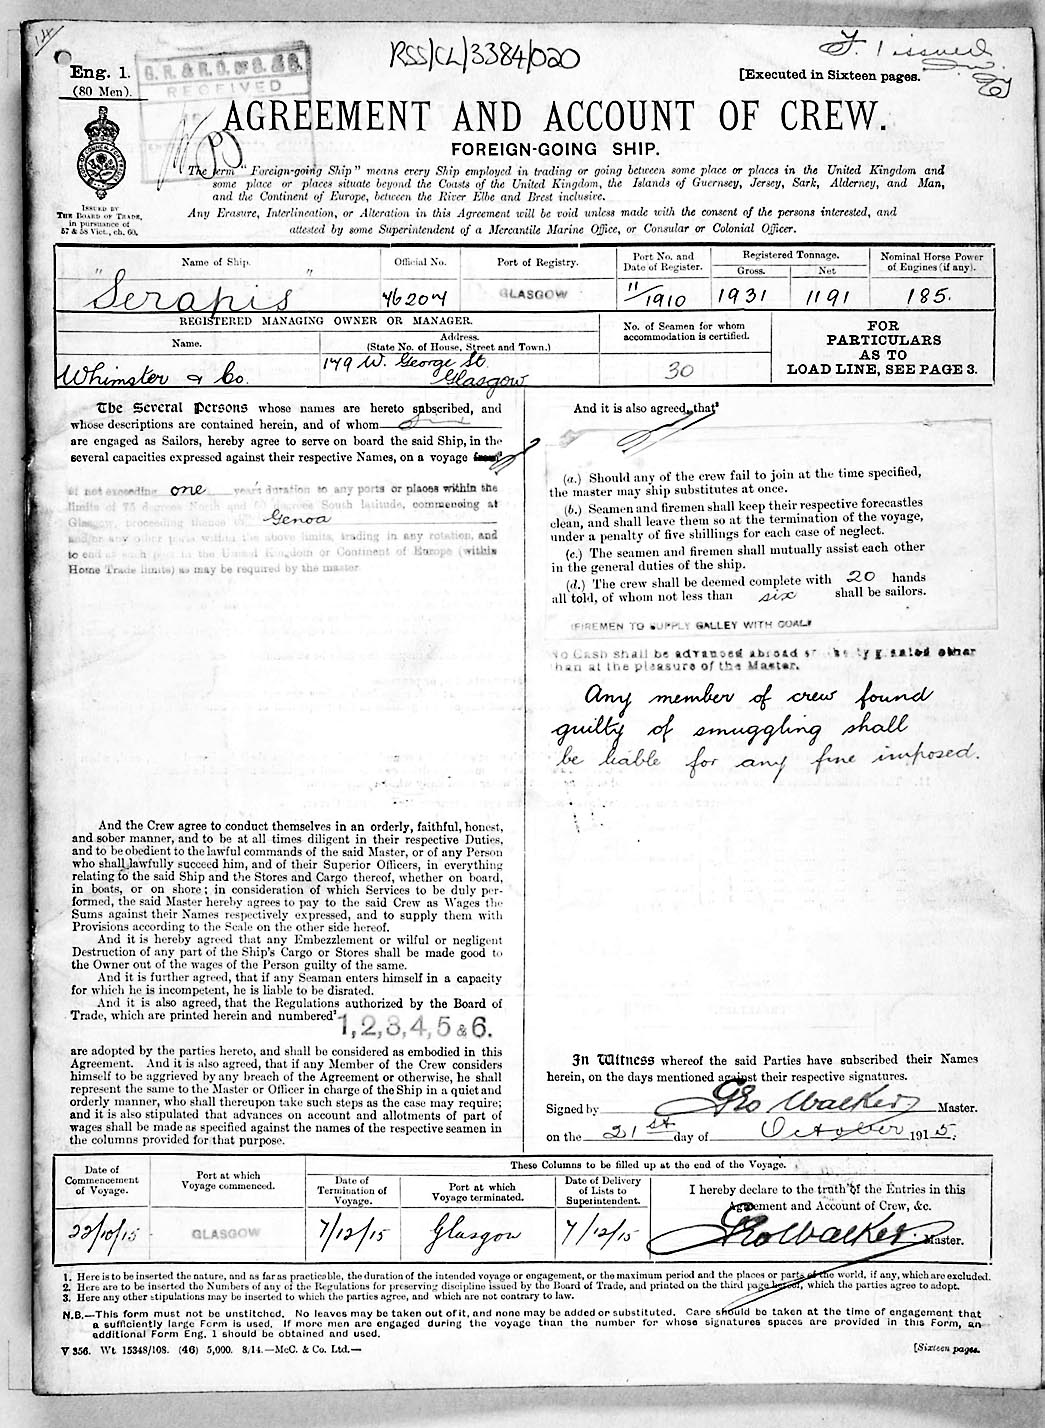 14
RSS/CL/3384/020
F. 1 issued
Eng. 1.
(80 Men).
RECEIVED
[Executed in Sixteen pages.
AGREEMENT AND ACCOUNT OF CREW.
FOREIGN-GOING SHIP.
The term "Foreign-going Ship" means every Ship employed in trading or going between some place or places in the United Kingdom and
some place or places situate beyond the Coasts of the United Kingdom, the Islands of Guernsey, Jersey, Sark, Alderney, and Man,
and the Continent of Europe, between the River Elbe and Brest inclusive.
Any Erasure, Interlineation, or Alteration in this Agreement will be void unless made with the consent of the persons interested, and
attested by some Superintendent of a Mercantile Marine Office, or Consular or Colonial Officer.
ISSUED BY
THE BOARD OF TRADE,
in pursuance of
57 & 58 Vict., ch. 60.
Name of Ship. Official No. Port of Registry. Port No. and Date of Register. Registered Tonnage. Gross. Net Nominal Horse Power of Engines (if any).
"Serapis" 76207 GLASGOW 11/1910 1931 1191 185.
REGISTERED MANAGING OWNER OR MANAGER.
Name. Address. (State No. of House, Street and Town.)
No. of Seamen for whom accommodation is certified.
FOR
PARTICULARS
AS TO
LOAD LINE, SEE PAGE 3.
Whimster & Co. 149 W. George St. Glasgow 30
The Several Persons whose names are hereto subscribed, and
whose descriptions are contained herein, and of whom
are engaged as Sailors, hereby agree to serve on board the said Ship, in the
several capacities expressed against their respective Names, on a voyage
of not exceeding one year's duration to any ports or places within the
limits of 75 degrees North and 60 degrees South latitude, commencing at
Glasgow, proceeding thence to Genoa
and/or any other ports within the above limits, trading in any rotation, and
to end at such port in the United Kingdom or Continent of Europe (within
Home Trade limits) as may be required by the master.
And the Crew agree to conduct themselves in an orderly, faithful, honest,
and sober manner, and to be at all times diligent in their respective Duties,
and to be obedient to the lawful commands of the said Master, or of any Person
who shall lawfully succeed him, and of their Superior Officers, in everything
relating to the said Ship and the Stores and Cargo thereof, whether on board,
in boats, or on shore; in consideration of which Services to be duly per-
formed, the said Master hereby agrees to pay to the said Crew as Wages the
Sums against their Names respectively expressed, and to supply them with
Provisions according to the Scale on the other side hereof.
And it is hereby agreed that any Embezzlement or wilful or negligent
Destruction of any part of the Ship's Cargo or Stores shall be made good to
the Owner out of the wages of the Person guilty of the same.
And it is further agreed, that if any Seaman enters himself in a capacity
for which he is incompetent, he is liable to be disrated.
And it is also agreed, that the Regulations authorized by the Board of
Trade, which are printed herein and numbered² 1, 2, 3, 4, 5 & 6.
are adopted by the parties hereto, and shall be considered as embodied in this
Agreement. And it is also agreed, that if any Member of the Crew considers
himself to be aggrieved by any breach of the Agreement or otherwise, he shall
represent the same to the Master or Officer in charge of the Ship in a quiet and
orderly manner, who shall thereupon take such steps as the case may require;
and it is also stipulated that advances on account and allotments of part of
wages shall be made as specified against the names of the respective seamen in
the columns provided for that purpose.
And it is also agreed, that³
(a.) Should any of the crew fail to join at the time specified,
the master may ship substitutes at once.
(b.) Seamen and firemen shall keep their respective forecastles
clean, and shall leave them so at the termination of the voyage,
under a penalty of five shillings for each case of neglect.
(c.) The seamen and firemen shall mutually assist each other
in the general duties of the ship.
(d.) The crew shall be deemed complete with 20 hands
all told, of whom not less than six shall be sailors.
FIREMEN TO SUPPLY GALLEY WITH COAL
No Cash shall be advanced abroad or liberty granted other
than at the pleasure of the Master.
Any member of crew found
guilty of smuggling shall
be liable for any fine imposed.
In Witness whereof the said Parties have subscribed their Names
herein, on the days mentioned against their respective signatures.
Signed by Geo Walker Master.
on the 21st day of October 1915.
Date of Commencement of Voyage. Port at which Voyage commenced. These Columns to be filled up at the end of the Voyage.
Date of Termination of Voyage. Port at which Voyage terminated. Date of Delivery of Lists to Superintendent. I hereby declare to the truth of the Entries in this Agreement and Account of Crew, &c.
22/10/15 GLASGOW 7/12/15 Glasgow 7/12/15 Geo Walker. Master.
1. Here is to be inserted the nature, and as far as practicable, the duration of the intended voyage or engagement, or the maximum period and the places or parts of the world, if any, which are excluded.
2. Here are to be inserted the Numbers of any of the Regulations for preserving discipline issued by the Board of Trade, and printed on the third page hereof, which the parties agree to adopt.
3. Here any other stipulations may be inserted to which the parties agree, and which are not contrary to law.
N.B.—This form must not be unstitched. No leaves may be taken out of it, and none may be added or substituted. Care should be taken at the time of engagement that
a sufficiently large Form is used. If more men are engaged during the voyage than the number for whose signatures spaces are provided in this Form, an
additional Form Eng. 1 should be obtained and used.
V 356. Wt 15348/108. (46) 5,000. 8/14.—McC. & Co. Ltd.—
[Sixteen pages.